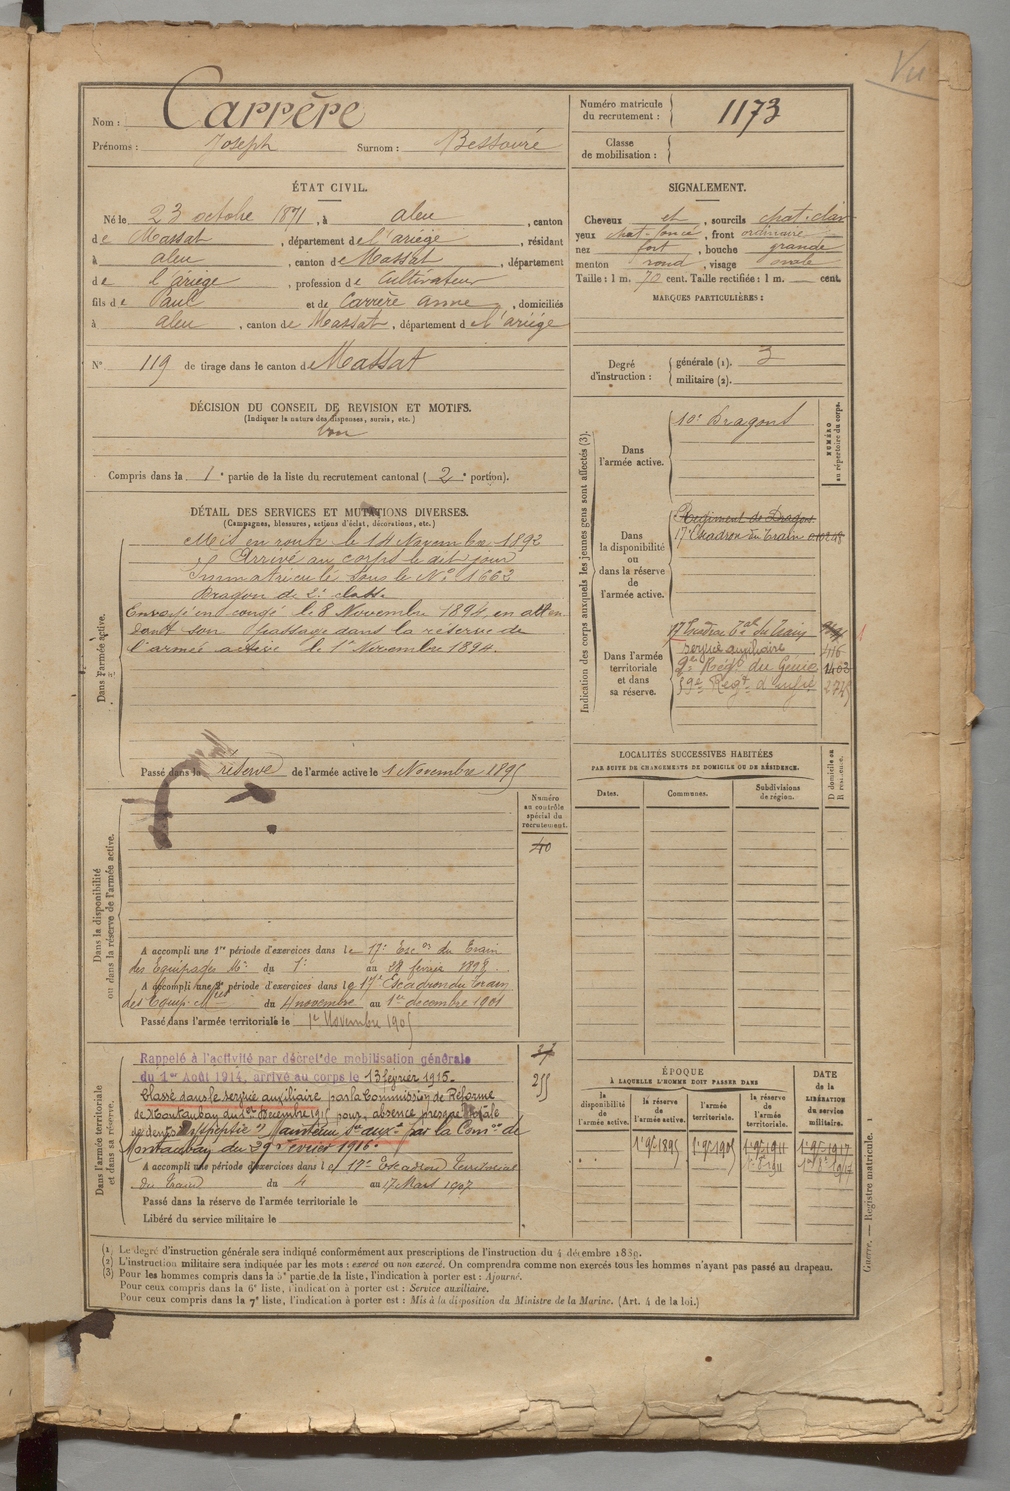 Vu
Nom : Carrère
Prénoms : Joseph Surnom : Bessouré
Numéro matricule du recrutement : 1173
Classe de mobilisation :
ÉTAT CIVIL.
Né le 23 octobre 1871, à aleu, canton
de Massat, département de l'ariège, résidant
à aleu, canton de Massat, département
de l'ariège, profession de Cultivateur
fils de Paul et de Carrère anne, domiciliés
à aleu, canton de Massat, département de l'ariège
N° 119 de tirage dans le canton de Massat
SIGNALEMENT.
Cheveux et, sourcils chat-clair
yeux chat-foncé, front ordinaire
nez fort, bouche grande
menton rond, visage ovale
Taille : 1 m. 70 cent. Taille rectifiée : 1 m. cent.
MARQUES PARTICULIÈRES :
Degré d'instruction : générale (1). 3
militaire (2).
DÉCISION DU CONSEIL DE REVISION ET MOTIFS.
(Indiquer la nature des dispenses, sursis, etc.)
bon
Compris dans la 1e partie de la liste du recrutement cantonal (2e portion).
DÉTAIL DES SERVICES ET MUTATIONS DIVERSES.
(Campagnes, blessures, actions d'éclat, décorations, etc.)
Dans l'armée active.
Mis en route le 14 Novembre 1892
Arrivé au corps le dit jour
Immatriculé sous le N° 1663
Dragon de 2e classe
Envoyé en congé le 8 Novembre 1894, en atten
dant son passage dans la réserve de
l'armée active le 1er Novembre 1894.
Passé dans la réserve de l'armée active le 1 Novembre 1895
Indication des corps auxquels les jeunes gens sont affectés (3).
NUMÉRO au répertoire du corps.
Dans l'armée active.
10e Dragons
Dans la disponibilité ou dans la réserve de l'armée active.
Régiment de Dragons
17e Escadron du Train
Dans l'armée territoriale et dans sa réserve.
17 Escadron Tal du Train
service auxiliaire 416
2e Régt du Génie 1462
59e Regt d'Infie
LOCALITÉS SUCCESSIVES HABITÉES
PAR SUITE DE CHANGEMENTS DE DOMICILE OU DE RÉSIDENCE.
Dates. Communes. Subdivisions de région. D domicile ou R résidence.
Dans la disponibilité ou dans la réserve de l'armée active.
Numéro au contrôle spécial du recrutement.
40
A accompli une 1re période d'exercices dans le 17e Escon du Train
des Equipages Mres du 1er au 28 février 1898.
A accompli une 2e période d'exercices dans le 17e Escadron du Train
des Equip. Mres du 4 novembre au 1er decembre 1901
Passé dans l'armée territoriale le 1er Novembre 1905
Dans l'armée territoriale et dans sa réserve.
Rappelé à l'activité par décret de mobilisation générale
du 1er Août 1914, arrivé au corps le 13 février 1915.
Classé dans le service auxiliaire par la Commission de Réforme
de Montauban du 1er Decembre 1915 pour "absence presque totale
de dents dyspeptie" Maintenu Sce auxre par la Comon de
Montauban du 29 Février 1916.
A accompli une période d'exercices dans le 17e Escadron Territorial
du Train du 4 au 17 Mars 1907
Passé dans la réserve de l'armée territoriale le
Libéré du service militaire le
255
ÉPOQUE
À LAQUELLE L'HOMME DOIT PASSER DANS
la disponibilité de l'armée active.
la réserve de l'armée active.
l'armée territoriale.
la réserve de l'armée territoriale.
DATE de la LIBÉRATION du service militaire.
1er 9bre 1895 1er 9bre 1905 1er 9bre 1911 1er 9bre 1917
(1) Le degré d'instruction générale sera indiqué conformément aux prescriptions de l'instruction du 4 décembre 1889.
(2) L'instruction militaire sera indiquée par les mots : exercé ou non exercé. On comprendra comme non exercés tous les hommes n'ayant pas passé au drapeau.
(3) Pour les hommes compris dans la 5e partie de la liste, l'indication à porter est : Ajourné.
Pour ceux compris dans la 6e liste, l'indication à porter est : Service auxiliaire.
Pour ceux compris dans la 7e liste, l'indication à porter est : Mis à la disposition du Ministre de la Marine. (Art. 4 de la loi.)
Guerre. — Registre matricule. 1